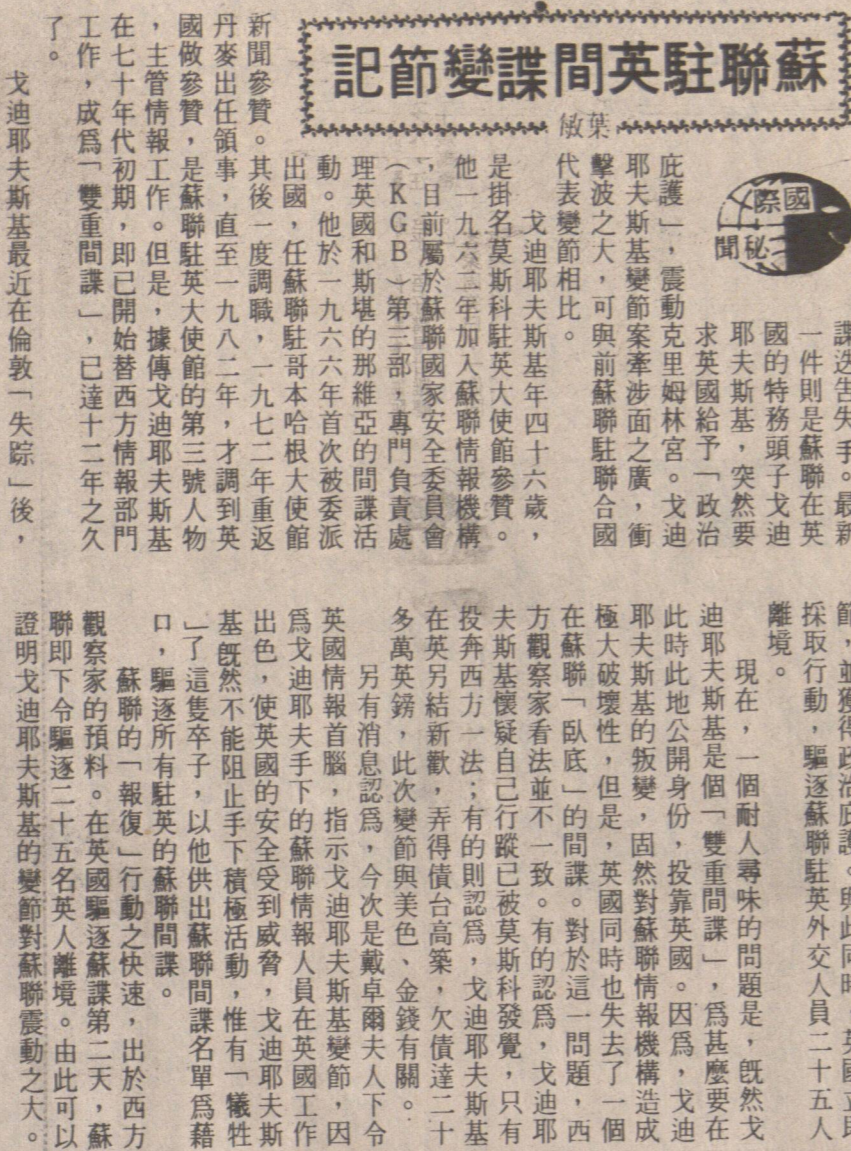 蘇聯駐英間諜變節記
葉敏
國際
秘聞
諜迭告失手。最新
一件則是蘇聯在英
國的特務頭子戈迪
耶夫斯基,突然要
求英國給予「政治
庇護」,震動克里姆林宮。戈迪
耶夫斯基變節案牽涉面之廣,衝
擊波之大,可與前蘇聯駐聯合國
代表變節相比。
戈迪耶夫斯基年四十六歲,
是掛名莫斯科駐英大使館參贊。
他一九六二年加入蘇聯情報機構
,目前屬於蘇聯國家安全委員會
(KGB)第三部,專門負責處
理英國和斯堪的那維亞的間諜活
動。他於一九六六年首次被委派
出國,任蘇聯駐哥本哈根大使館
新聞參贊。其後一度調職,一九七二年重返
丹麥出任領事,直至一九八二年,才調到英
國做參贊,是蘇聯駐英大使館的第三號人物
,主管情報工作。但是,據傳戈迪耶夫斯基
在七十年代初期,即已開始替西方情報部門
工作,成爲「雙重間諜」,已達十二年之久
了。
戈迪耶夫斯基最近在倫敦「失踪」後,
節,並獲得政治庇護。與此同時,英國立即
採取行動,驅逐蘇聯駐英外交人員二十五人
離境。
現在,一個耐人尋味的問題是,既然戈
迪耶夫斯基是個「雙重間諜」,爲甚麼要在
此時此地公開身份,投靠英國。因爲,戈迪
耶夫斯基的叛變,固然對蘇聯情報機構造成
極大破壞性,但是,英國同時也失去了一個
在蘇聯「臥底」的間諜。對於這一問題,西
方觀察家看法並不一致。有的認爲,戈迪耶
夫斯基懷疑自己行蹤已被莫斯科發覺,只有
投奔西方一法;有的則認爲,戈迪耶夫斯基
在英另結新歡,弄得債台高築,欠債達二十
多萬英鎊,此次變節與美色、金錢有關。
另有消息認爲,今次是戴卓爾夫人下令
英國情報首腦,指示戈迪耶夫斯基變節,因
爲戈迪耶夫手下的蘇聯情報人員在英國工作
出色,使英國的安全受到威脅,戈迪耶夫斯
基既然不能阻止手下積極活動,惟有「犧牲
」了這隻卒子,以他供出蘇聯間諜名單爲藉
口,驅逐所有駐英的蘇聯間諜。
蘇聯的「報復」行動之快速,出於西方
觀察家的預料。在英國驅逐蘇諜第二天,蘇
聯即下令驅逐二十五名英人離境。由此可以
證明戈迪耶夫斯基的變節對蘇聯震動之大。